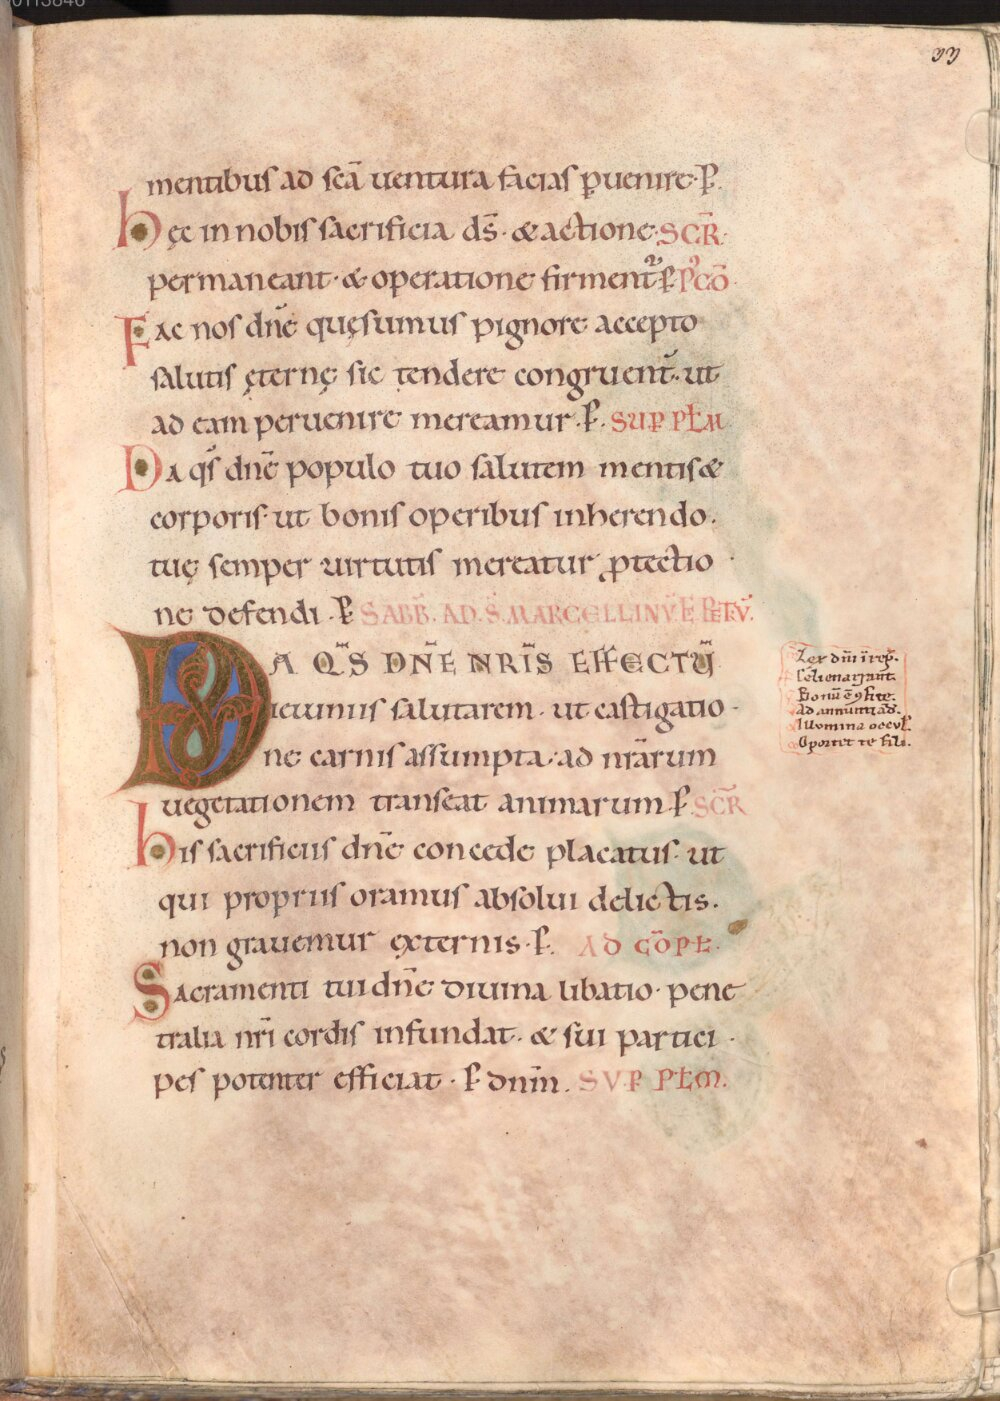 mentibus ad scā uentura facias ꝑuenire· ꝑ.
hęc in nobis sacrificia ds̄· & actione· SCR̄.
permaneant· & operatione firmentᷣ· ꝑ P'CŌ
Fac nos dn̄e quęsumus pignore accepto
salutis ęternę sic tendere congruent̄· ut
ad eam peruenire mereamur· ꝑ· SUP PŁM
Da qs̄ dn̄e populo tuo salutem mentis &
corporis· ut bonis operibus inherendo·
tuę semper uirtutis mereatur ꝓtectio
ne defendi· ꝑ SABB̄. AD. S̄. MARCELLINV̄. E. PETV̄.
DA Q̄S DN̄E NRĪS EFFECTŪ
ieiuniis salutarem· ut castigatio
ne carnis assumpta· ad nrārum
uegetationem transeat animarum ꝑ SCR̄
his sacrificiis dn̄e concede placatus· ut
qui propriis oramus absolui delictis.
non grauemur externis· ꝑ. AD CŌPŁ.
Sacramenti tui dn̄e diuina libatio· pene
tralia nr̄i cordis infundat· & sui partici
pes potenter efficiat· ꝑ dnm̄. SVP PŁM.
Lex dn̄i īrep̄.
Bonū ē 9fite.
Ad annuntiad̄.
Illumina ocul̄.
Oportet te fili.